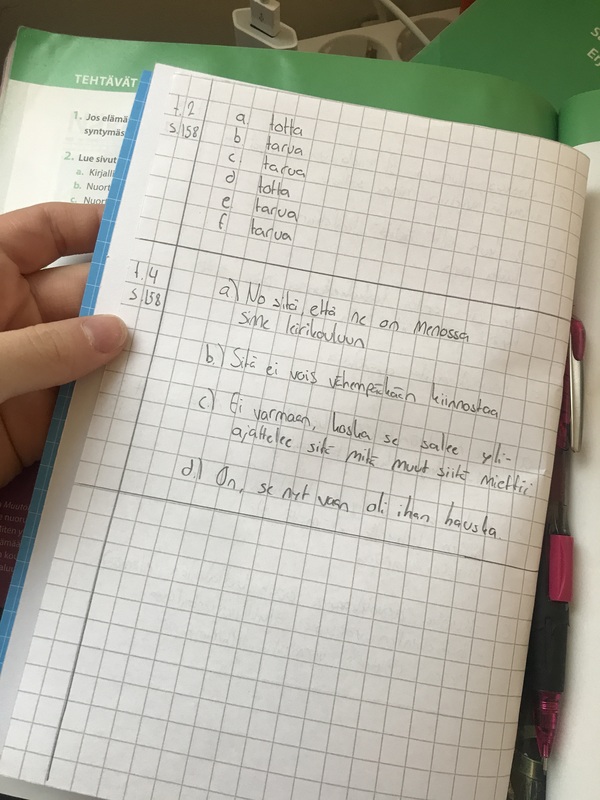 TEHTÄVÄT
1. Jos elämä
syntymäs
2. Lue sivut
a. Kirjalli
b. Nuort
c. Nuor
t. 2
s. 158
a totta
b tarua
c tarua
d totta
e tarua
f tarua
t. 4
s. 158
a) No sitä, että ne on menossa
sine kirikouluun
b.) Sitä ei vois vähempääkään kiinnostaa
c.) Ei varmaan, koska se salee yli-
ajattelee sitä mitä muut siitä miettii
d.) On, se nyt vaan oli ihan hauska